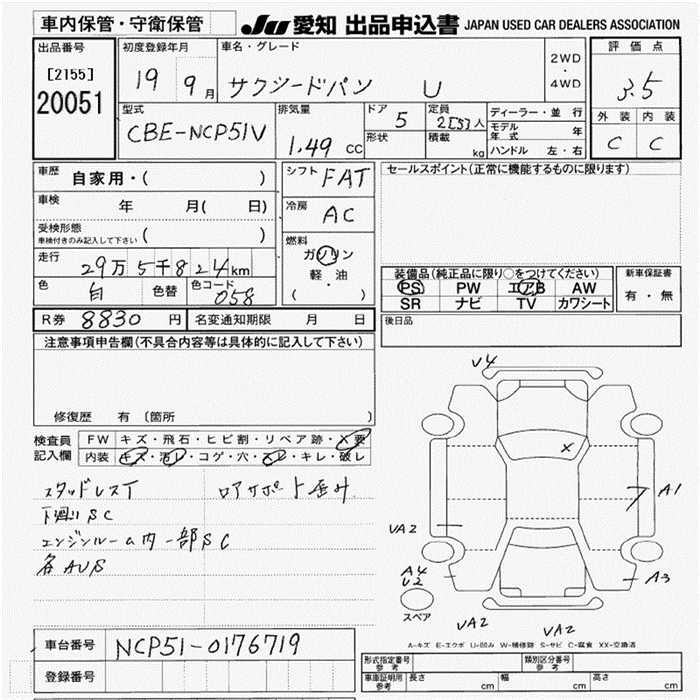 車内保管・守衛保管
JU 愛知 出品申込書 JAPAN USED CAR DEALERS ASSOCIATION
出品番号
[2155]
20051
初度登録年月
19 9月
車名・グレード
サクシードバン U
2WD
・
4WD
評価点
3.5
外装 内装
C C
型式
CBE-NCP51V
排気量
1.49 CC
ドア
5
形状
定員
2[5]人
積載
kg
ディーラー・並行
モデル年式 年
ハンドル 左・右
車歴 自家用・( )
車検 年 月( 日)
受検形態
車検付きのみ記入して下さい ( )
走行 29万5千824km
色 白 色替 色コード 058
シフト FAT
冷房 AC
燃料
ガソリン
軽・油
( )
セールスポイント(正常に機能するものに限ります)
装備品(純正品に限り○をつけてください)
PS PW エアB AW
SR ナビ TV カワシート
新車保証書
有・無
R券 8830 円 名変通知期限 月 日
後日品
注意事項申告欄(不具合内容等は具体的に記入して下さい)
修復歴 有 〔箇所
検査員
記入欄
FW キズ・飛石・ヒビ割・リペア跡・X要
内装 キズ・汚レ・コゲ・穴・スレ・キレ・破レ
スタッドレスT
ロアサポート歪み
下廻りSC
エンジンルーム内一部SC
各AUS
V4
X
A1
VA2
A4
U2
A3
スペア
VA2
VA2
A-キズ E-エクボ U-凹み W-補修跡 S-サビ C-腐食 XX-交換済
車台番号 NCP51-0176719
登録番号
形式指定番号
参考
類別区分番号
参考
車庫証明用
参考
長さ cm 幅 cm 高さ cm